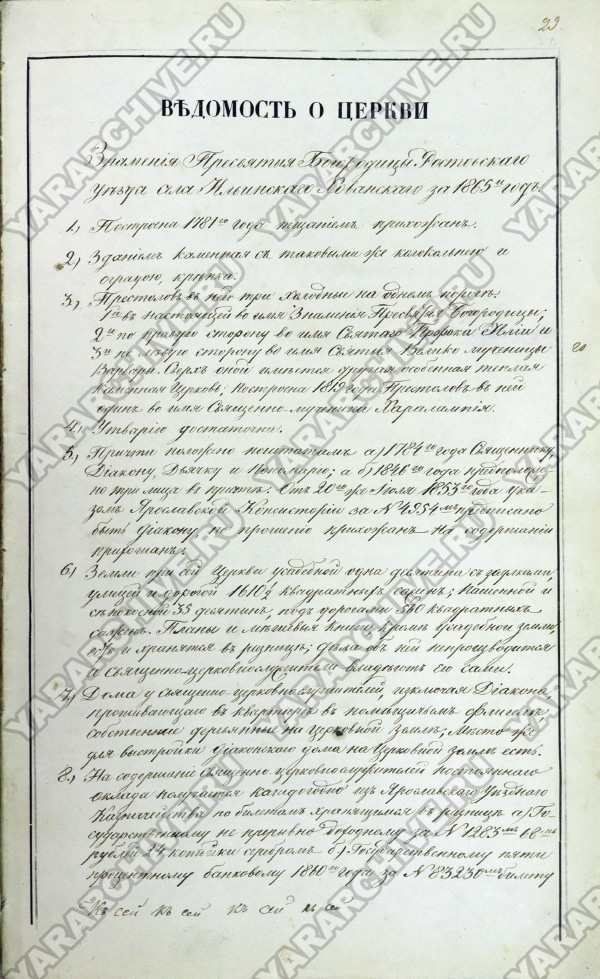 29.
ВѢДОМОСТЬ О ЦЕРКВИ
Знаменія Пресвятыя Богородицы Ростовскаго
уѣзда села Ильинскаго Хованскаго за 1865й годъ.
1.) Построена 1781го года тщаніемъ прихожанъ.
2.) Зданіемъ каменная съ таковыми же колокольнею и
оградою, крѣпка.
3.) Престоловъ въ ней три холодные на одномъ
1й въ настоящей во имя Знаменія Пресвятыя Богородицы;
2й по правую сторону во имя Святаго Пророка Иліи и
3й по лѣвую сторону во имя Святыя Велико-мученицы
Варвары. Сверхъ оной имѣется другая особенная теплая
каменная Церковь; построена 1819 года Престолъ въ ней
одинъ во имя Священно-мученика Харалампія.
4.) Утварію достаточна.
5.) Причта положено по штатамъ а) 1784го года Священнику,
Діакону, Дьячку и Пономарю; а б) 1846го года
но три лица въ причтѣ. Отъ 20го же Іюля 1853го года ука-
зомъ Ярославской Консисторіи за № 4254мъ предписано
быть діакону по прошенію прихожанъ на содержаніи
прихожанъ.
6.) Земли при сей Церкви усадебной одна десятина съ
улицей и дорогой 1610½ квадратныхъ сажен; Пашенной и
сѣнокосной 35 десятинъ, подъ дорогами 560 квадратныхъ
сажень. Планы и межевыя книги кромѣ усадебной земли,
есть и хранятся въ ризницѣ; дѣла объ ней непроизводится
а Священно-церковнослужители владѣютъ ею сами.
7.) Дома у священно-церковнослужителей, изключая Діакона
проживающаго въ квартирѣ въ помѣщичьемъ флигелѣ,
собственные деревянные на Церковной землѣ; мѣсто же
для выстройки діаконскаго дома на Церковной землѣ есть.
8.) На содержаніе священно-церковнослужителей постояннаго
оклада получается каждогодно изъ Ярославскаго Уѣзднаго
Казначейства по билетамъ хранящимся въ ризницѣ а) Го-
сударственному не прерывно доходному за № 1283мъ 68
рублей 24 копѣйки серебромъ б) Государственному пяти
процентному банковому 1860го года за № 83230мъ билету
Къ сей къ сей Къ сей къ сей
YARARCHIVE.RU